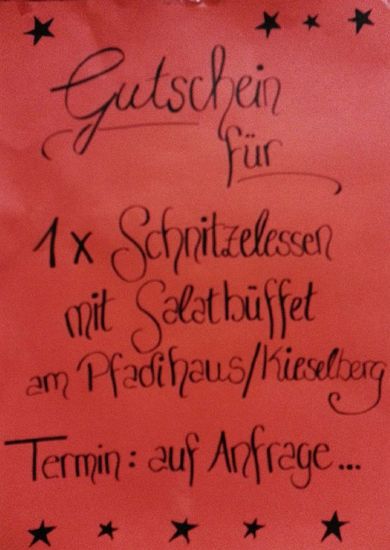 Gutschein
für
1x Schnitzelessen
mit Salatbüffet
am Pfadihaus/Kieselberg
Termin: auf Anfrage...